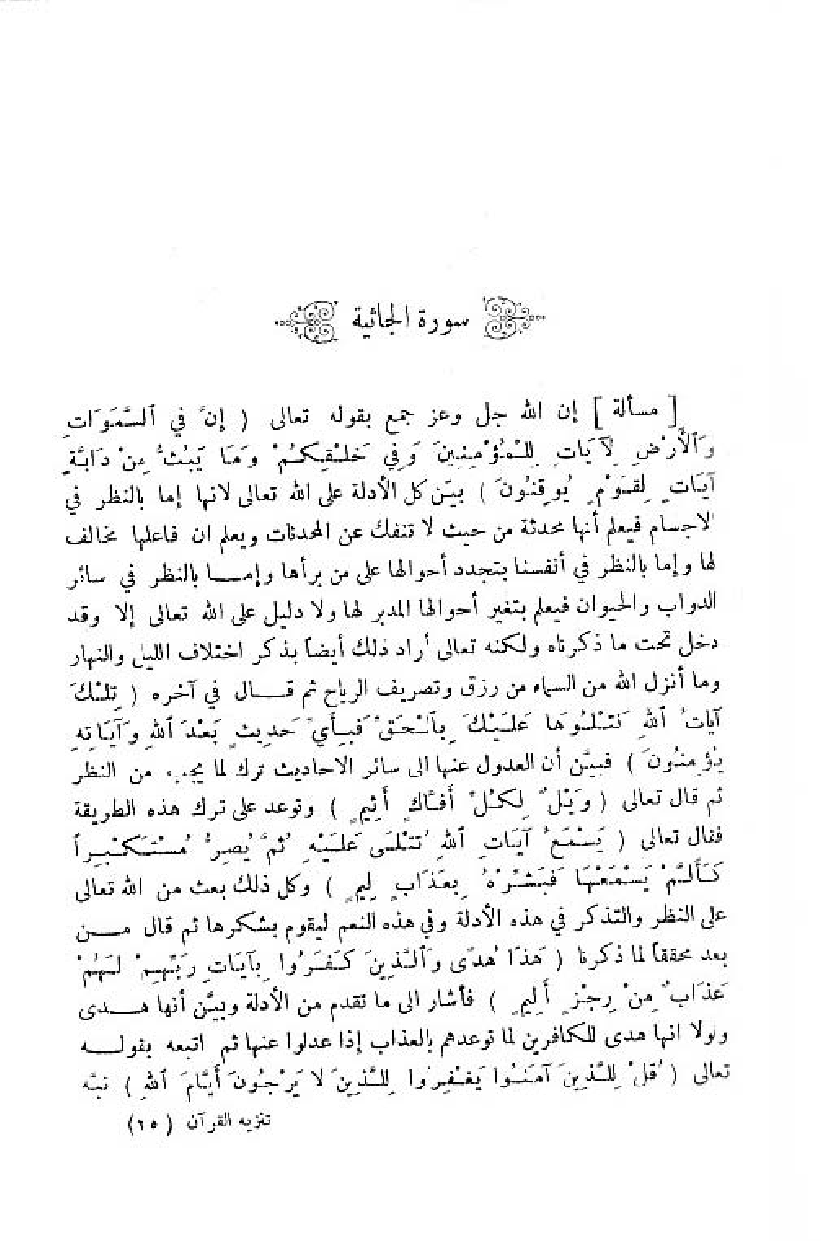 سورة الجاثية
[ مسألة ] إن الله جل وعز جمع بقوله تعالى ( إنَّ في ٱلسَّمَوَاتِ
وَٱلأَرْضِ لَآيَاتٍ لِلْمُؤْمِنِينَ وَفِي خَلْقِكُمْ وَمَا يَبُثُّ مِنْ دَابَّةٍ
آيَاتٍ لِقَوْمٍ يُوقِنُونَ ) بيَّن كل الأدلة على الله تعالى لانها إما بالنظر في
الاجسام فيعلم أنها محدثة من حيث لا تنفك عن المحدثات ويعلم ان فاعلها مخالف
لها وإما بالنظر في أنفسنا بتجدد أحوالها على من برأها وإمـــا بالنظر في سائر
الدواب والحيوان فيعلم بتغير أحوالها المدبر لها ولا دليل على الله تعالى إلا وقد
دخل تحت ما ذكرناه ولكنه تعالى أراد ذلك أيضاً بذكر اختلاف الليل والنهار
وما أنزل الله من السماء من رزق وتصريف الرياح ثم قـــال في آخره ( تِلْكَ
آيَاتُ ٱللهِ نَتْلُوهَا عَلَيْكَ بِٱلْحَقِّ فَبِأَيِّ حَدِيثٍ بَعْدَ ٱللهِ وَآيَاتِهِ
يُؤْمِنُونَ ) فبيَّن أن العدول عنها الى سائر الاحاديث ترك لما يجب من النظر
ثم قال تعالى ( وَيْلٌ لِكُلِّ أَفَّاكٍ أَثِيمٍ ) وتوعد على ترك هذه الطريقة
فقال تعالى ( يَسْمَعُ آيَاتِ ٱللهِ تُتْلَى عَلَيْهِ ثُمَّ يُصِرُّ مُسْتَكْبِراً
كَأَنْ لَمْ يَسْمَعْهَا فَبَشِّرْهُ بِعَذَابٍ لِيمٍ ) وكل ذلك بعث من الله تعالى
على النظر والتذكر في هذه الأدلة وفي هذه النعم ليقوم بشكرها ثم قال مـــن
بعد محققاً لما ذكرنا ( هَذَا هُدًى وَٱلَّذِينَ كَفَرُوا بِآيَاتِ رَبِّهِمْ لَهُمْ
عَذَابٌ مِنْ رِجْزٍ أَلِيمٍ ) فأشار الى ما تقدم من الأدلة وبيَّن أنها هـــدى
ولولا انها هدى للكافرين لما توعدهم بالعذاب إذا عدلوا عنها ثم اتبعه بقولـــه
تعالى ( قُلْ لِلَّذِينَ آمَنُوا يَغْفِرُوا لِلَّذِينَ لا يَرْجُونَ أَيَّامَ ٱللهِ ) نبَّه
تنزيه القرآن (٢٥)